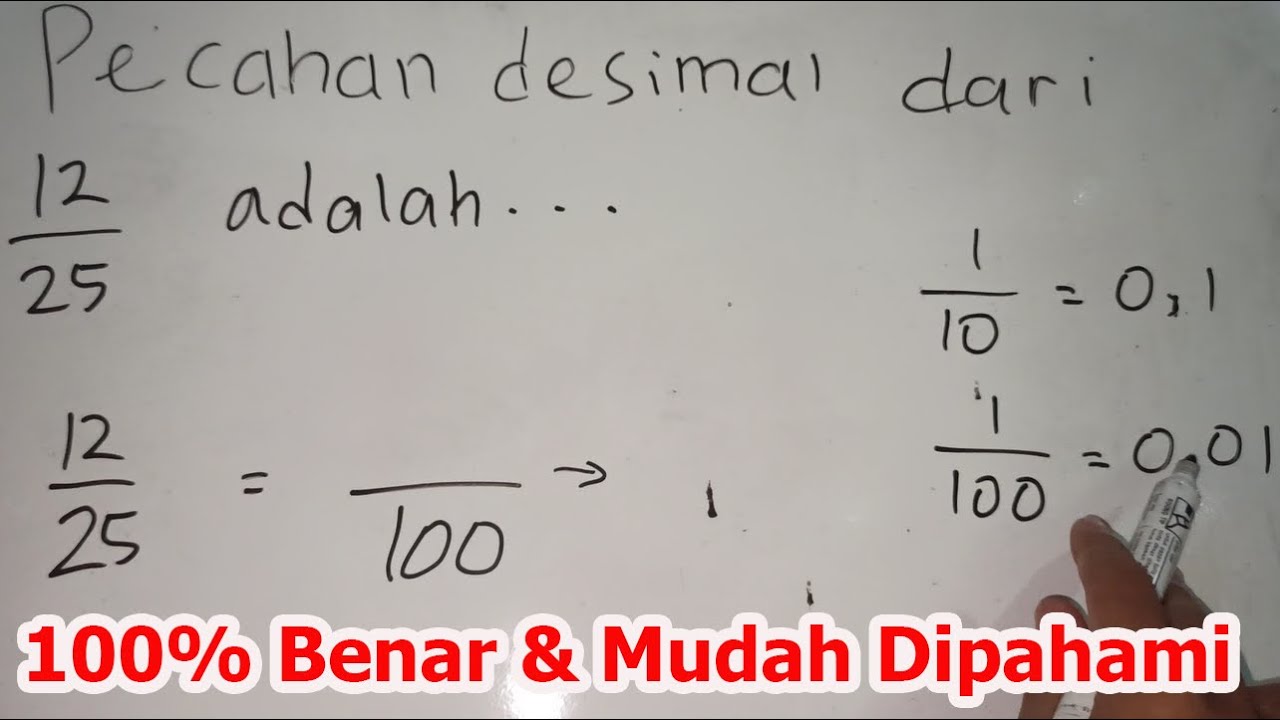 Pecahan desimal dari
12/25 adalah...
1/10 = 0,1
12/25 = /100 →
1/100 = 0,01
100% Benar & Mudah Dipahami